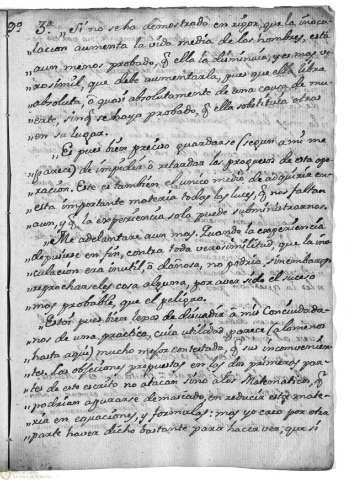 3ª. „ Si no se ha demostrado en rigor, que la inocu-
lacion aumenta la vida media de los hombres, está
„ aun menos probado, q̃ ella la disminuia; y es mas ve-
„ rosimil, que debe aumentarla, pues que ella libra
„ absoluta, ò quasi absolutamente de una causa de mu-
„ erte, sin q̃ se haya probado, q̃ ella sobstituia otras
„ en su lugar.
„ Es pues bien preciso guardarse (segun à mi me
„ parece) de impedir ò retardar los progresos de esta ope-
„ racion. Este es tambien el unico medio de adquirir en
„ esta importante materia todas las luces, q̃ nos faltan
„ aun, y q̃ la experiencia sola puede subministrarnos.
„ Me adelantare aun mas. Quando la experiencia
„ depusiese en fin, contra toda verosimilitud, que la ino-
„ culacion era inutil ò dañosa, no podria, sin embargo,
„ reprocharseles cosa alguna, por aver sido el suceso
„ mas probable, que el peligro.
„ Estoi pues bien lexos de disuadir à mis Conciudada-
„ nos de una practica, cuia utilidad parece (a lo menos
„ hasta aqui) mucho mejor contestada, q̃ sus inconvenien-
„ tes. Las objeciones propuestas en las dos primeras par-
„ tes de este escrito no atacan sino a los Matematicos, q̃
„ podrian apurarse demasiado, en reducir esta mate-
„ ria en equaciones, y formulas; mas yo creo por otra
„ parte haver dicho bastante para hacer ver, que si